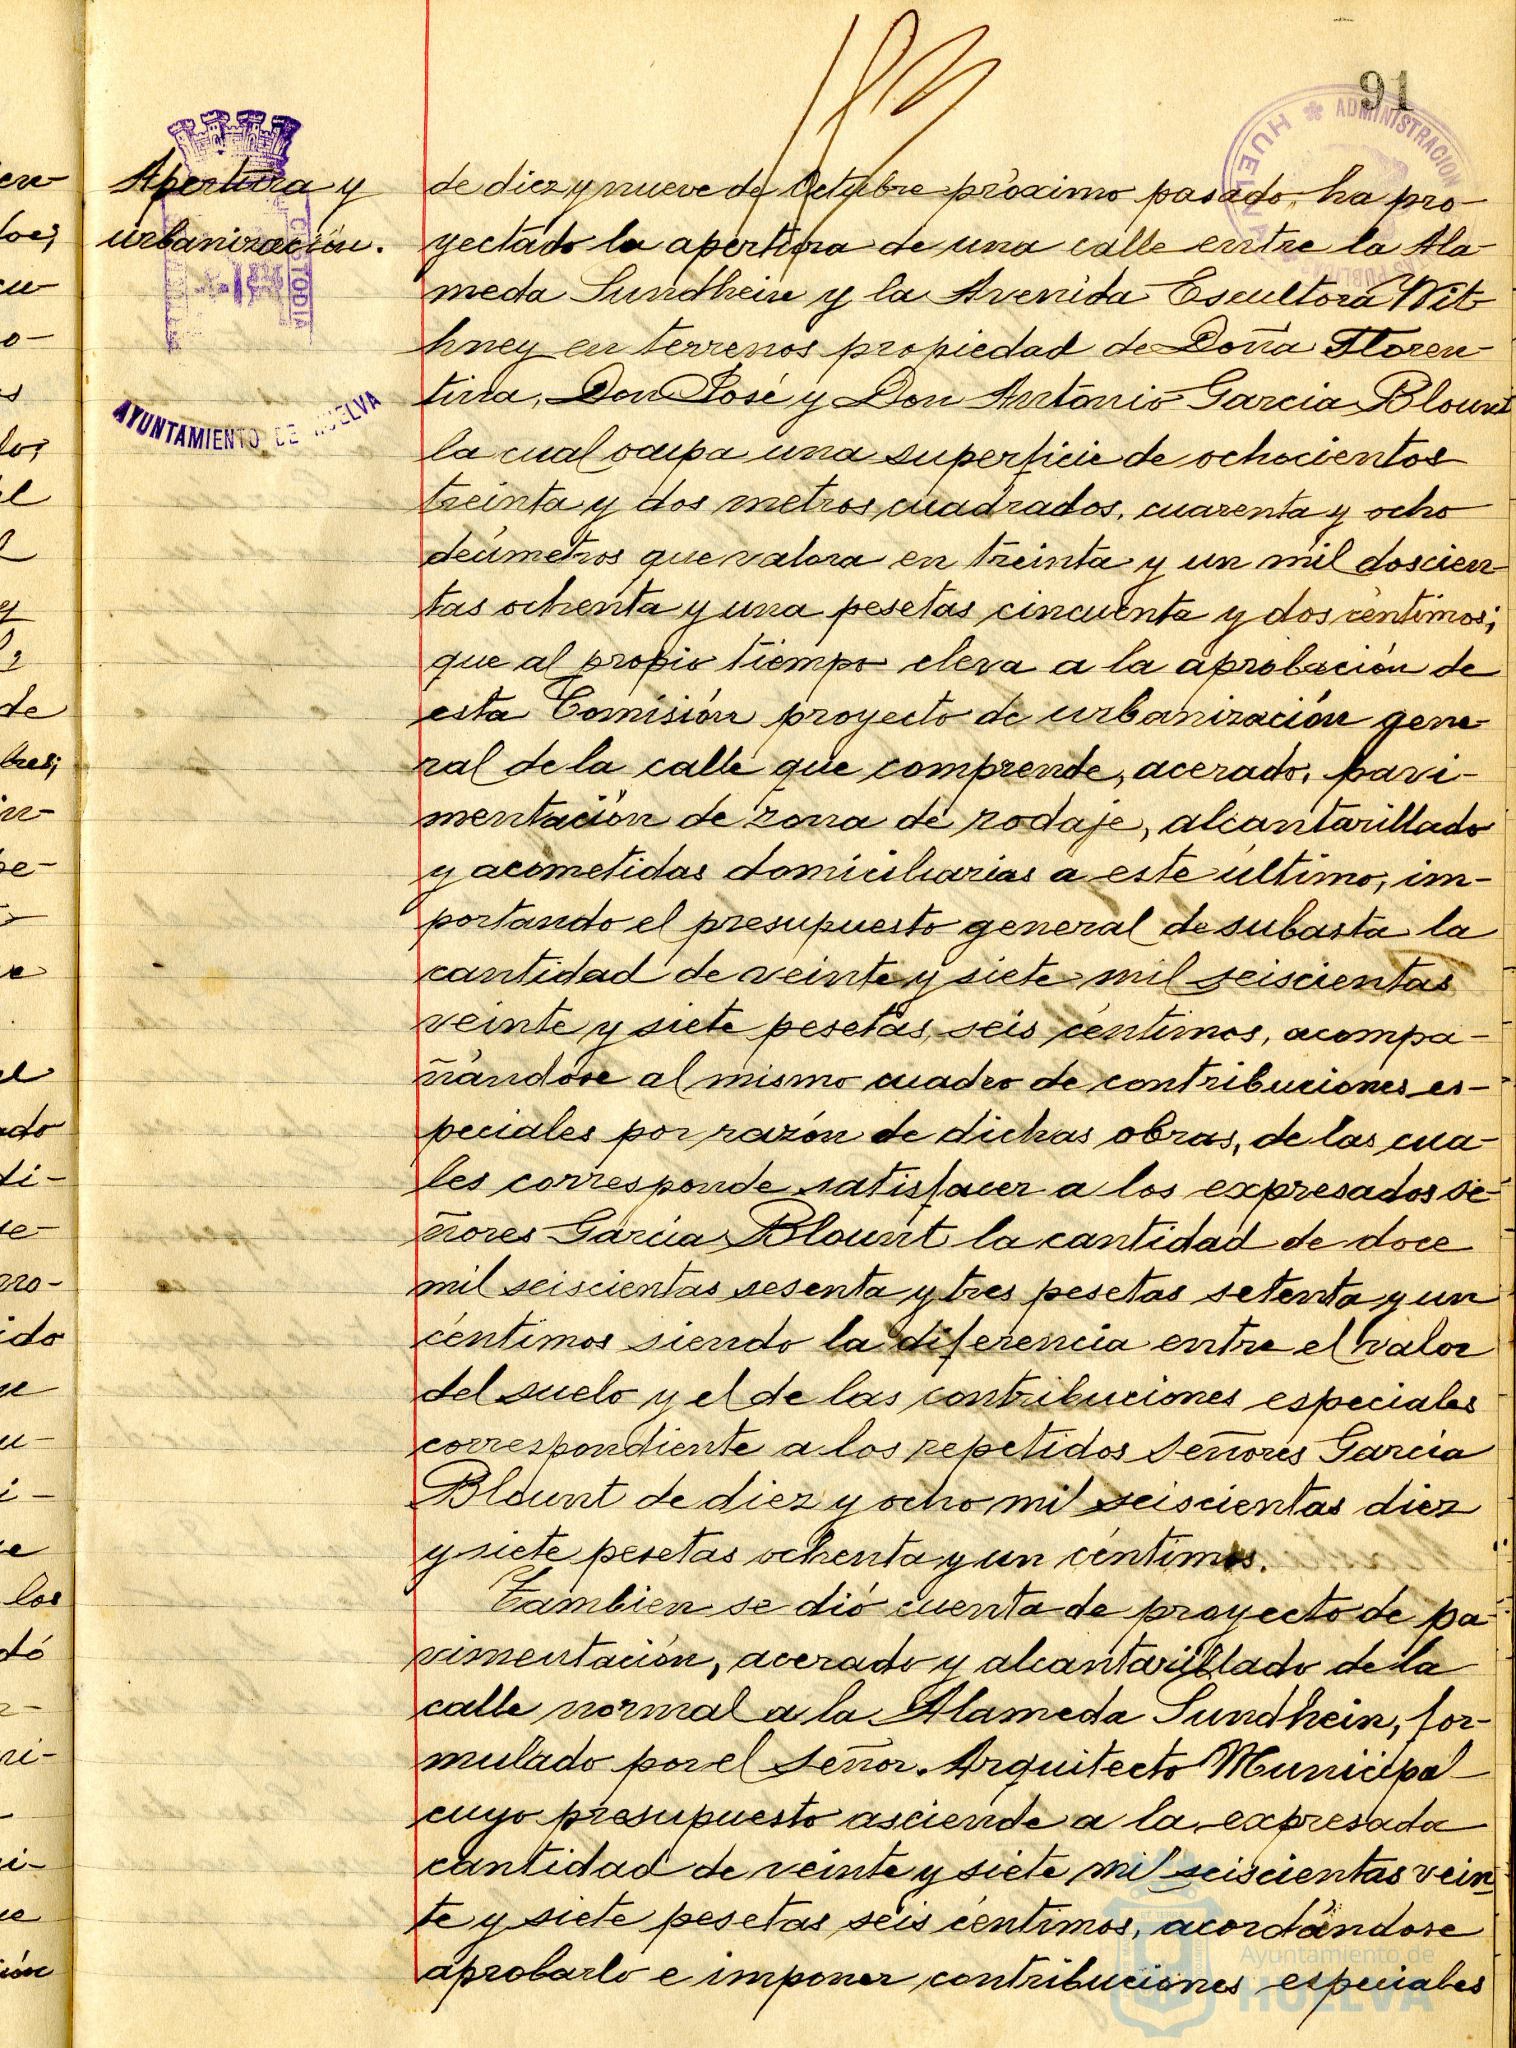 91
ADMINISTRACION
HUELVA
Apertura y
urbanización.
CUSTODIA
AYUNTAMIENTO DE HUELVA
de diez y nueve de Octubre próximo pasado, ha pro-
yectado la apertura de una calle entre la Ala-
meda Sundhein y la Avenida Escultora Wit-
hney en terrenos propiedad de Doña Floren-
tina, Don José y Don Antonio Garcia Blount
la cual ocupa una superficie de ochocientos
treinta y dos metros cuadrados, cuarenta y ocho
decimetros que valora en treinta y un mil doscien-
tas ochenta y una pesetas cincuenta y dos céntimos;
que al propio tiempo eleva a la aprobación de
esta Comisión proyecto de urbanización gene-
ral de la calle que comprende, acerado, pavi-
mentación de zona de rodaje, alcantarillado
y acometidas domiciliarias a este último, im-
portando el presupuesto general de subasta la
cantidad de veinte y siete mil seiscientas
veinte y siete pesetas, seis céntimos, acompa-
ñándose al mismo cuadro de contribuciones es-
peciales por razón de dichas obras, de las cua-
les corresponde satisfacer a los expresados se-
ñores Garcia Blount la cantidad de doce
mil seiscientas sesenta y tres pesetas setenta y un
céntimos siendo la diferencia entre el valor
del suelo y el de las contribuciones especiales
correspondiente a los repetidos Señores Garcia
Blount de diez y ocho mil seiscientas diez
y siete pesetas ochenta y un céntimos.
Tambien se dió cuenta de proyecto de pa-
vimentación, acerado y alcantarillado de la
calle normal a la Alameda Sundhein, for-
mulado por el Señor Arquitecto Municipal
cuyo presupuesto asciende a la expresada
cantidad de veinte y siete mil seiscientas vein-
te y siete pesetas seis céntimos, acordándose
aprobarlo e imponer contribuciones especiales
Ayuntamiento de
HUELVA